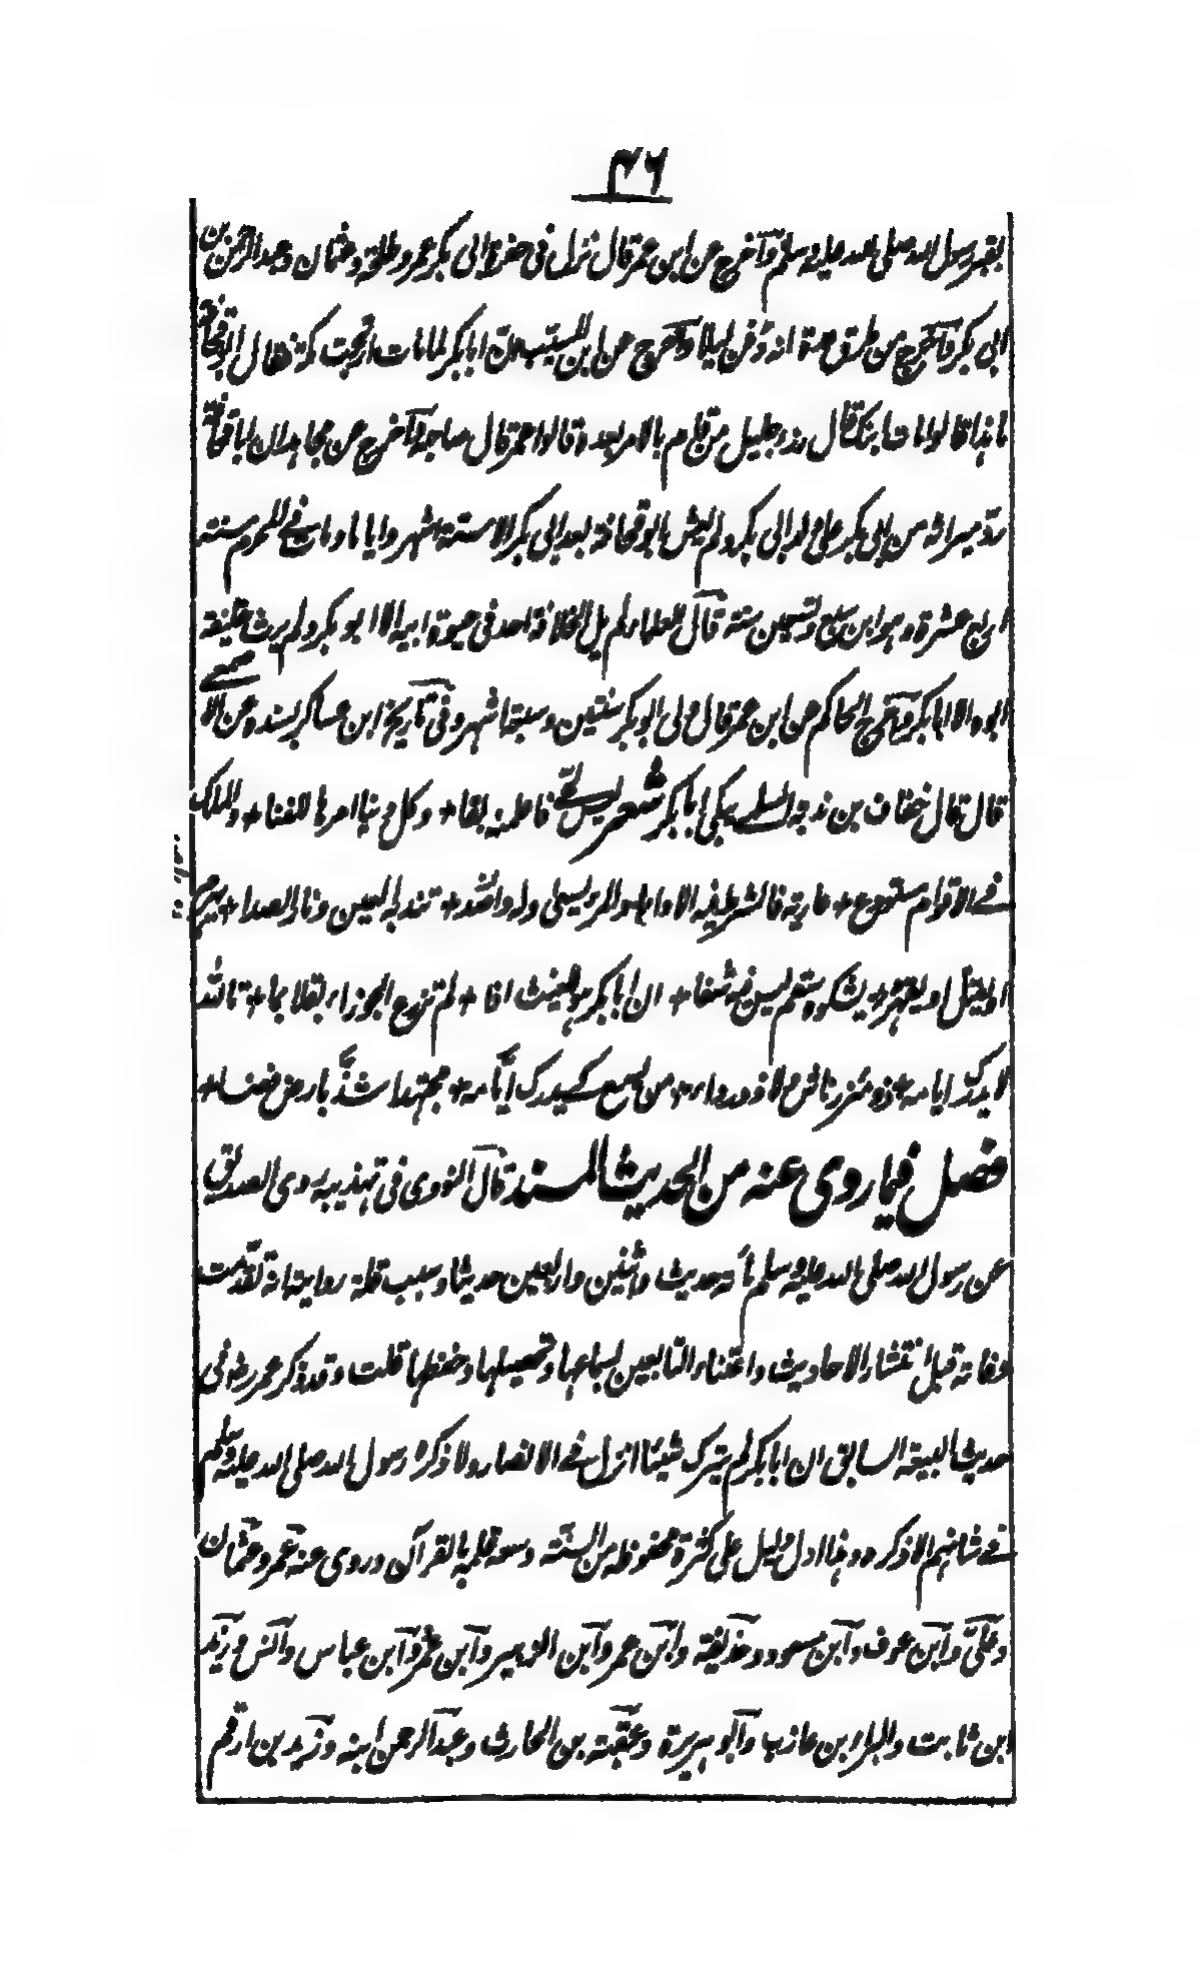 ٣٦
بقبر رسول الله صلى الله عليه وسلم وأخرج عن ابن عمر قال نزل في حفرة ابي بكر عمر وطلحة وعثمان وعبد الرحمن بن
ابي بكر وأخرج من طرق عدة انه دُفن ليلا وأخرج عن ابن المسيّب انّ ابا بكر لما مات ارتجت مكة فقال ابو قحافة
ما هذا قالوا مات ابنك قال رزء جليل من قام بالامر بعده قالوا عمر قال صاحبه وأخرج عن مجاهد ان ابا قحافة
ردّ ميراثه من ابي بكر على ولد ابي بكر ولم يعش ابو قحافة بعد ابي بكر الا ستة اشهر واياما ومات في المحرم سنة
اربع عشرة وهو ابن سبع وتسعين سنة قال العلماء لم يل الخلافة احد في حيوة ابيه الا ابو بكر ولم يرث خليفة
ابوه الا ابا بكر وأخرج الحاكم عن ابن عمر قال ولي ابو بكر سنتين وسبعة اشهر وفي تاريخ ابن عساكر بسنده عن الاصمعي
قال قال خفاف بن ندبه السلمي يبكي ابا بكر شعر ليس لحيّ فاعلمنه بقا + وكل دنيا امرها للفنا + والملك
في الاقوام مستودع + عارية فالشرط فيه الادا + والمرء يسعى وله راصد + تندبه العين ونار الصدا + يهرم
او يقتل او يقهره + يشكوه سقم ليس فيه شفا + ان ابا بكر هو الغيث اذا + لم تزرع الجوزاء بقلا بما + تالله
لا يدرك ايامه + ذو مئزر ناش ولا ذو رداء + من يسع كي يدرك ايّامه + مجتهدا شذّ بارض فضا +
فصل فيما روي عنه من الحديث المسند قال النووي في تهذيبه روى الصديق
عن رسول الله صلى الله عليه وسلم مائة حديث واثنين واربعين حديثا وسبب قلة رواياته تقدّمت
وفاته قبل انتشار الاحاديث واعتناء التابعين بسماعها وتحصيلها وحفظها قلت وقد ذكر عمر رض في
حديث البيعة السابق ان ابا بكر لم يترك شيئا انزل في الانصار ولا ذكره رسول الله صلى الله عليه وسلم
في شانهم الا ذكره وهذا ادل دليل على كثرة محفوظه من السنّة وسعة علمه بالقرآن وروى عنه عمر وعثمان
وعليّ وابن عوف وابن مسعود وحذيفة وابن عمر وابن الزبير وابن عمرو وابن عباس وانس وزيد
ابن ثابت والبراء بن عازب وابو هريرة وعقبة بن الحارث وعبد الرحمن ابنه وزيد بن ارقم